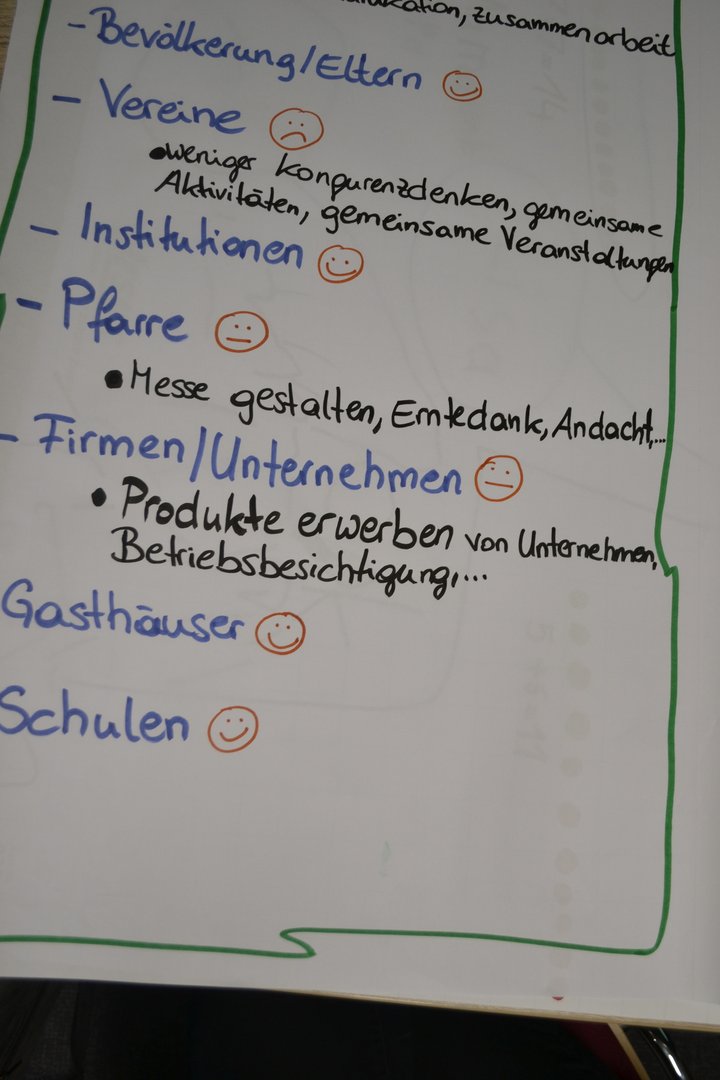 zusammenarbeit
- Bevölkerung/Eltern
- Vereine
• weniger Konqurenzdenken, gemeinsame
Aktivitäten, gemeinsame Veranstaltungen
- Institutionen
- Pfarre
• Messe gestalten, Erntedank, Andacht,...
- Firmen/Unternehmen
• Produkte erwerben von Unternehmen,
Betriebsbesichtigung,...
Gasthäuser
Schulen